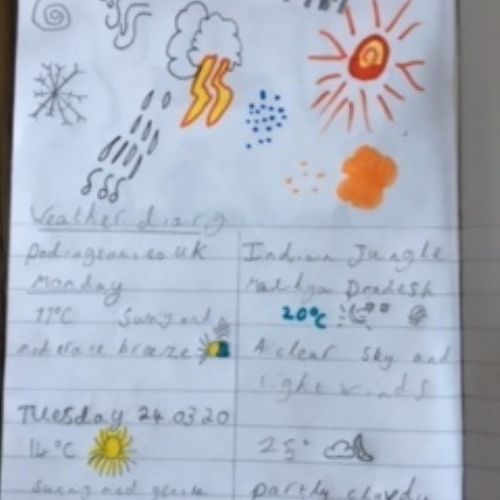 Weather diary
Padington, so UK
Monday
11°C Sunny and
moderate breeze
Tuesday 24.03.20
14°C
Sunny and
Indian Jungle
Madhya Pradesh
20°C
A clear sky and
light winds
25°
partly cloudy